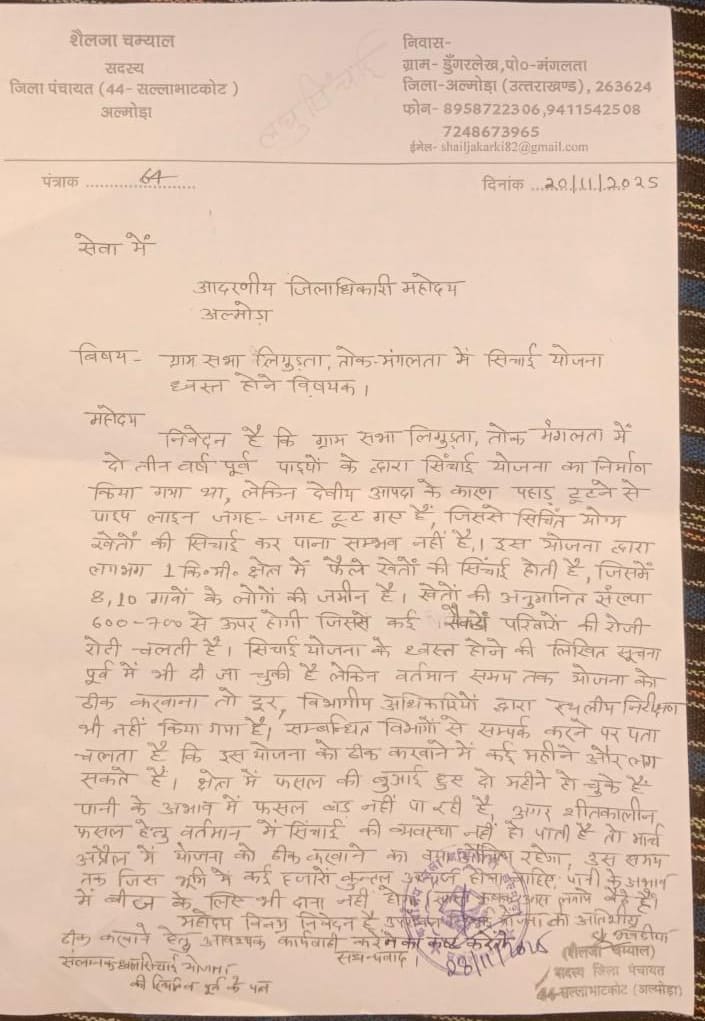 शैलजा चम्याल
सदस्य
जिला पंचायत (44- सल्लाभाटकोट )
अल्मोड़ा
निवास-
ग्राम- डुँगरलेख,पो०-मंगलता
जिला-अल्मोड़ा (उत्तराखण्ड), 263624
फोन- 8958722306,9411542508
7248673965
ईमेल- shailjakarki82@gmail.com
लघु सिंचाई
पंत्राक ......64......
दिनांक ...20/11/2025
सेवा में
आदरणीय जिलाधिकारी महोदय
अल्मोड़ा
विषय- ग्राम सभा लिगुड़ता, तोक-मंगलता में सिचाई योजना
ध्वस्त होने विषयक।
महोदय
निवेदन है कि ग्राम सभा लिगुड़ता, तोक मंगलता में
दो तीन वर्ष पूर्व पाइपों के द्वारा सिंचाई योजना का निर्माण
किया गया था, लेकिन देवीय आपदा के कारण पहाड़ टूटने से
पाइप लाइन जगह-जगह टूट गए हैं, जिससे सिचिंत योग्य
खेतों की सिचाई कर पाना सम्भव नहीं है,। इस योजना द्वारा
लगभग 1 कि०मी० क्षेत्र में फैले खेतों की सिंचाई होती है, जिसमें
8,10 गावों के लोगों की जमीन है। खेतों की अनुमानित संख्या
600-700 से ऊपर होगी जिससे कई सैकडों परिवारों की रोजी
रोटी चलती है। सिचाई योजना के ध्वस्त होने की लिखित सूचना
पूर्व में भी दी जा चुकी है लेकिन वर्तमान समय तक योजना को
ठीक करवाना तो दूर, विभागीय अधिकारियों द्वारा स्थलीय निरीक्षण
भी नहीं किया गया है। सम्बन्धित विभागों से सम्पर्क करने पर पता
चलता है कि इस योजना को ठीक करवाने में कई महीने और लग
सकते हैं। क्षेत्र में फसल की बुआई हुए दो महीने हो चुके हैं
पानी के अभाव में फसल बड नहीं पा रही है, अगर शीतकालीन
फसल हेतु वर्तमान में सिंचाई की व्यवस्था नहीं हो पाती है तो मार्च
अप्रैल में योजना को ठीक करवाने का क्या औचित्य रहेगा, उस समय
तक जिस भूमि में कई हजारों कुन्तल उपज होना चाहिए, पानी के अभाव
में बीज के लिए भी दाना नहीं होगा
महोदय विनम्र निवेदन है योजना को अतिशीघ्र
ठीक करवाने हेतु आवश्यक कार्यवाही करने का कष्ट करेंगे
सधन्यवाद।
20/11/2025
(शैलजा चम्याल)
सदस्य जिला पंचायत
44-सल्लाभाटकोट (अल्मोड़ा)
संलग्नक- सिचाई योजना
की पूर्व के पत्र